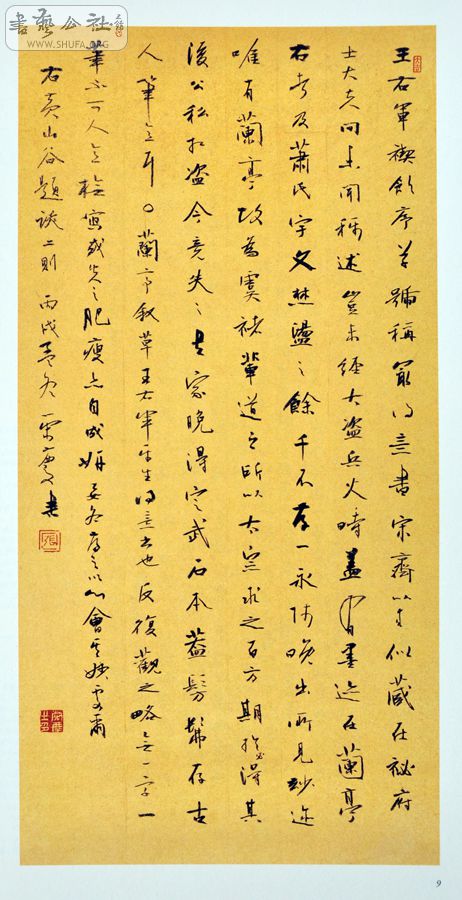 書藝公社
WWW.SHUFA.ORG
王右軍禊飲序草號稱最得意書宋齊以來似藏在祕府
士大夫間未聞稱述豈未經大盜兵火時蓋有墨迹在蘭亭
右者及蕭氏宇文焚盪之餘千不存一永師晚出所見妙迹
唯有蘭亭故為虞褚輩道之所以太宗求之百方期於必得其
後公私相盜今竟失之書家晚得定武石本蓋髣髴存古
人筆意耳○蘭亭敘草王右軍平生得意書也反復觀之略無一字一
筆不可人意摹寫或失之肥瘦亦自成妍要各存之以心會其妙處爾
右黃山谷題跋二則 丙戌孟冬 書
9